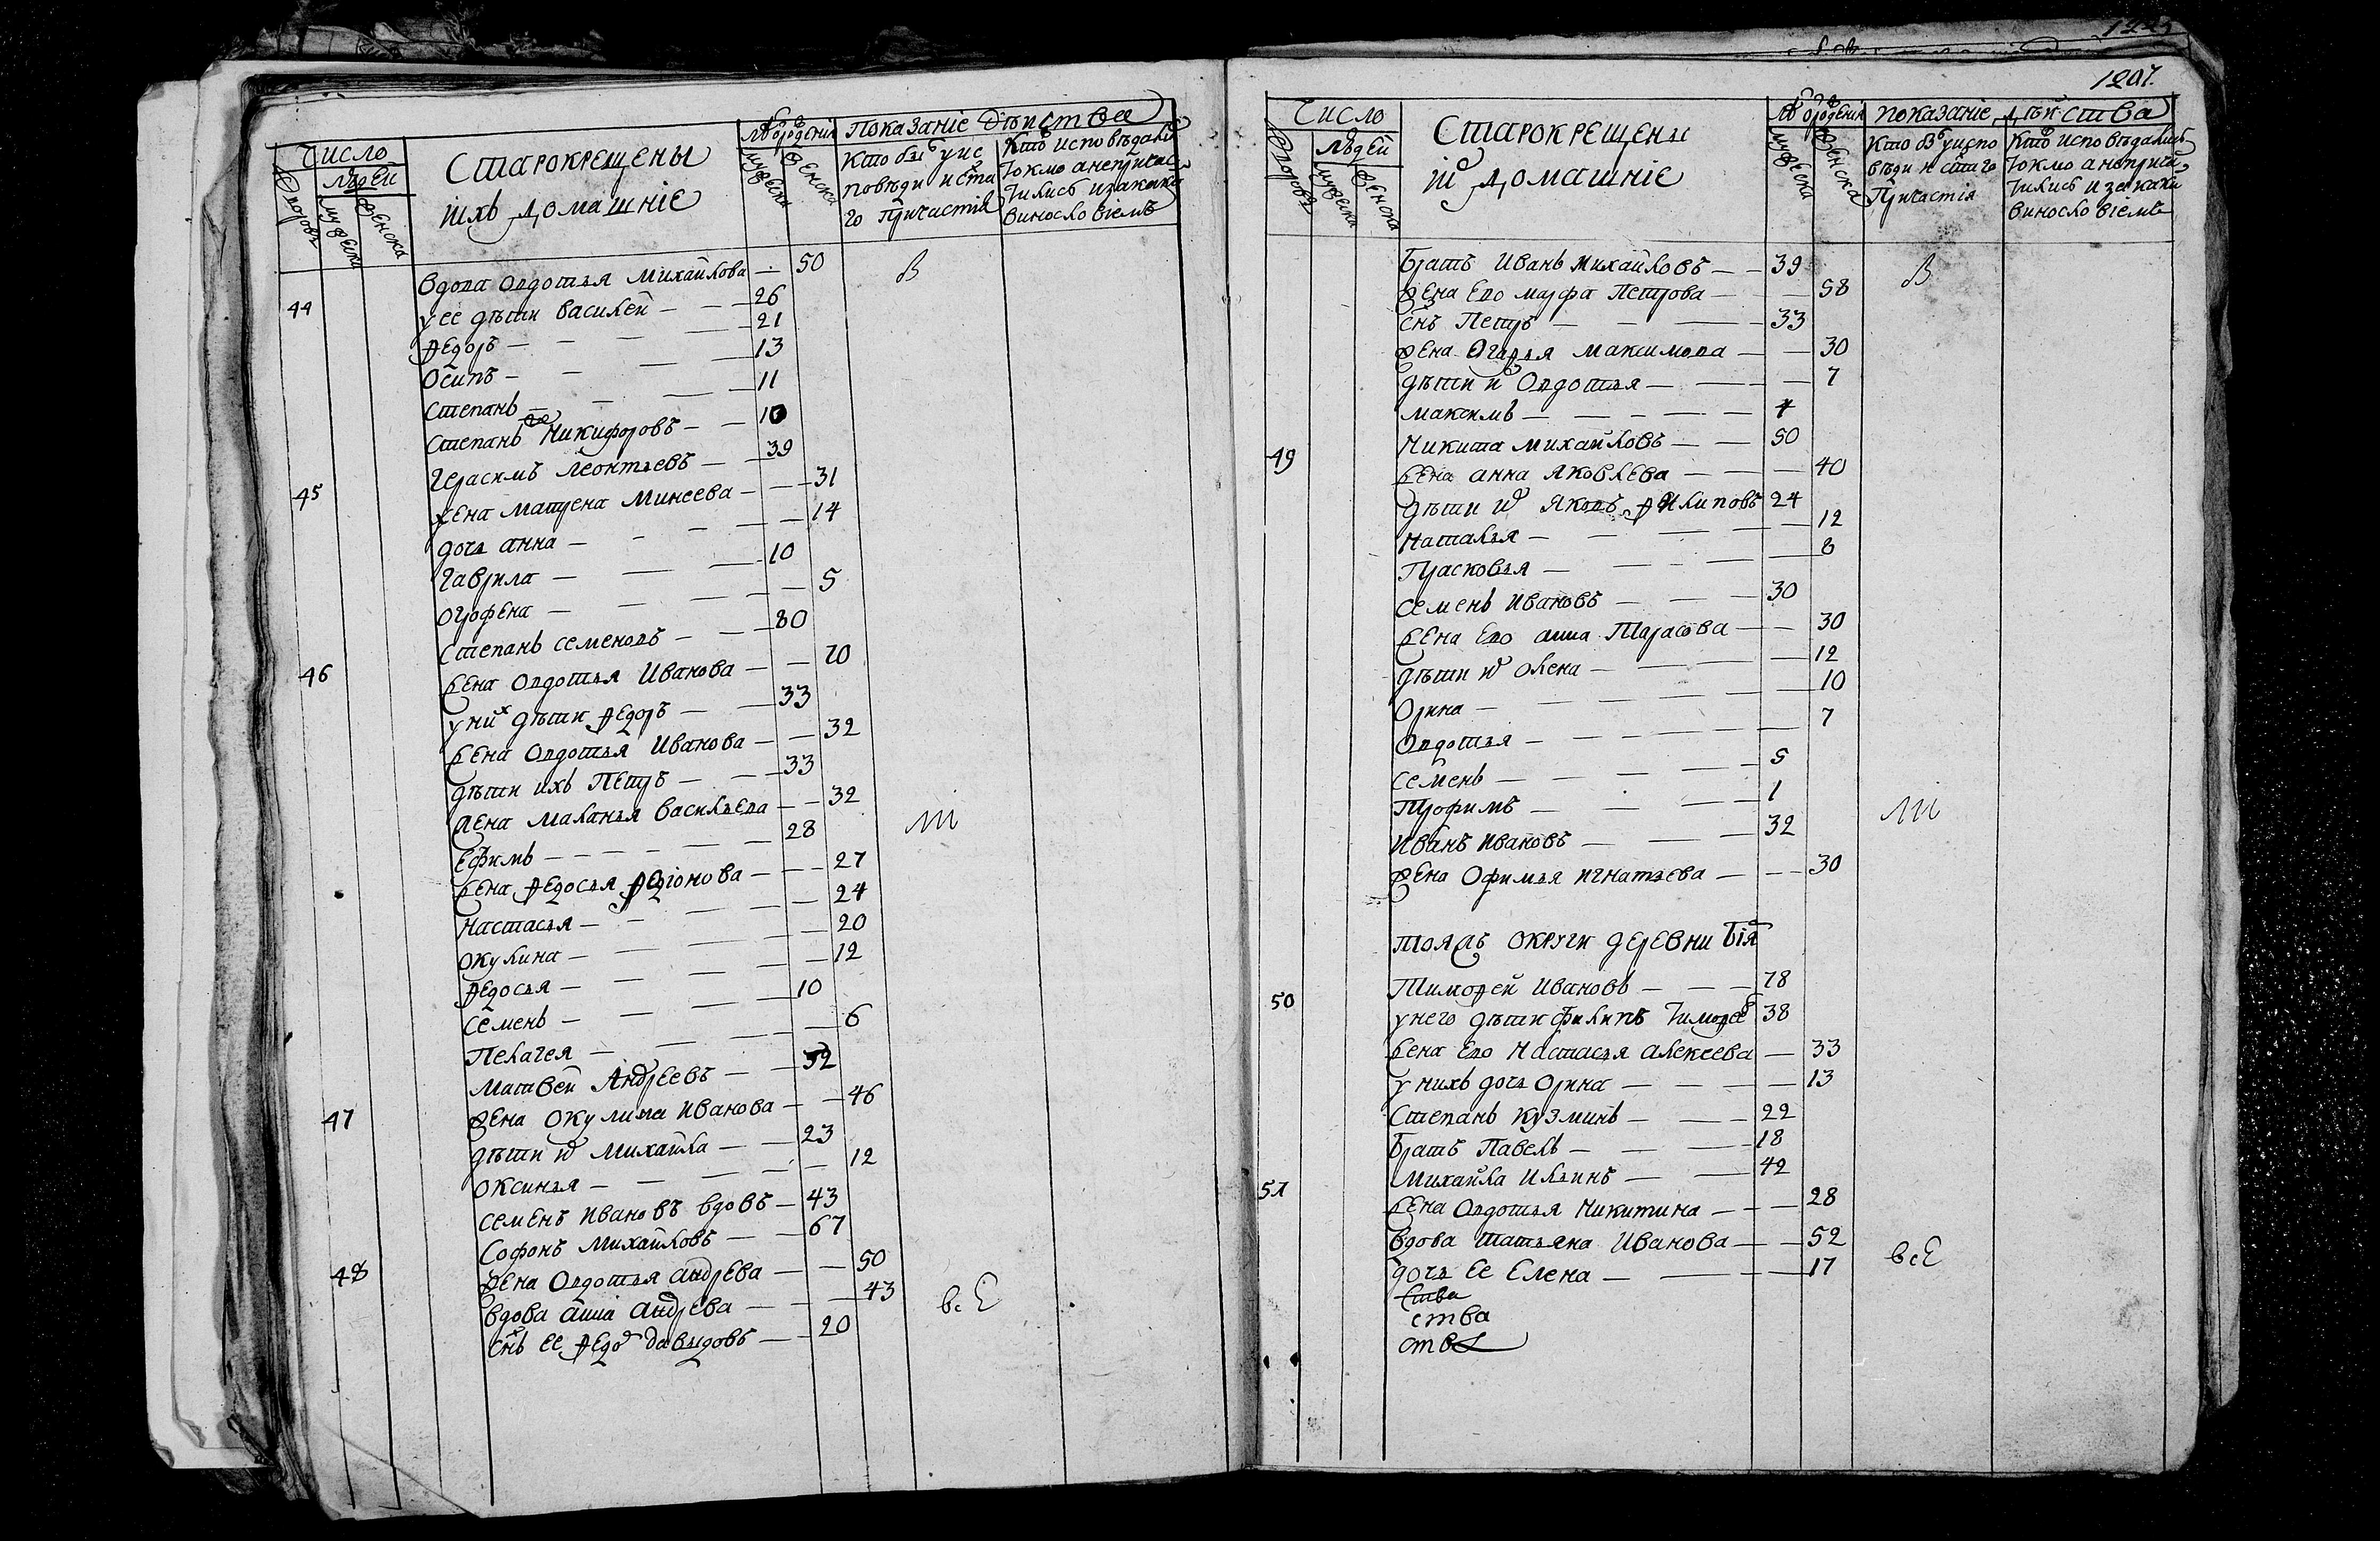 Число
людей
дворовъ
мужеска
женска
Старокрещены
ихъ домашніе
мужеска
женска
показаніе действа
Кто былъ у ис
поведи и свята
го причастія
Кто исповедали
токмо а непричас
тились и за каки
винословіемъ
вдова Овдотья Михайлова — 50 В
44 у ее дети Василей — 26
Ѳедоръ — 21
Осипъ — 13
Степанъ — 11
Степанъ Никифоровъ — 10
45 Герасимъ Леонтьевъ — 39
жена Матрена Минеева — 31
дочь анна — 14
Гаврила — 10
Огрофена — 5
46 Степанъ Семеновъ — 80
жена Овдотья Иванова — 70
у них дѣти Ѳедоръ — 33
жена Овдотья Иванова — 32
дѣти ихъ Петръ — 33
жена Маланья Васильева — 32
Ефимъ — 28
жена Ѳедосья — 27
Настасья — 24
Окулина — 20
Ѳедосья — 12
Семенъ — 10
Пелагея — 6
47 Матвей Андреевъ — 52
жена Окулина Иванова — 46
дѣти их Михайла — 23
Оксинья — 12
Семенъ Ивановъ вдовъ — 43
48 Софонъ Михайловъ — 67
жена Овдотья Андрева — 50
вдова Анна Андрева — 43 всЕ
снъ ее Ѳедоръ Давыдовъ — 20
1207.
Число
людей
дворовъ
мужеска
женска
Старокрещены
их домашніе
мужеска
женска
показаніе действа
Кто былъ у испо
веди и свята го
Причастія
Кто исповедались
токмо а неприча
тились и за каки
винословіемъ
Братъ Иванъ Михайловъ — 39 В
жена Ево марфа Петрова — 58
снъ Петръ — 33
жена Огафья Максимова — 30
дѣти их Овдотья — 7
Максимъ — 4
49 Никита Михайловъ — 50
жена анна Яковлева — 40
Дѣти их Яковъ Ѳилиповъ 24
Наталья — 12
Прасковья — 8
Семенъ Ивановъ — 30
жена Ево анна Тарасова — 30
дѣти их Олена — 12
Орина — 10
Овдотья — 7
Семенъ — 5
Трофимъ — 1
Иванъ Ивановъ — 32
жена Офимья Игнатьева — 30
тояжъ округи деревни
50 Тимоѳей Ивановъ — 78
у него дѣти Филипъ Тимоѳее 38
жена Ево Настасья Алексеева — 33
у нихъ дочь Орина — 13
Степанъ Кузминъ — 22
Братъ Павелъ — 18
51 Михайла Ильинъ — 42
жена Овдотья Никитина — 28
вдова Татьяна Иванова — 52
дочь Ее Елена — 17 всЕ
ства
ства
ства